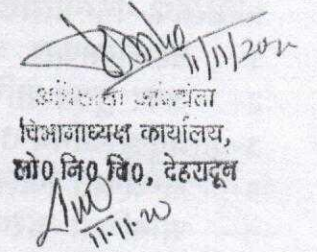 11/11/20
अभियंता
विभागाध्यक्ष कार्यालय,
लो0 नि0 वि0, देहरादून
11.11.20